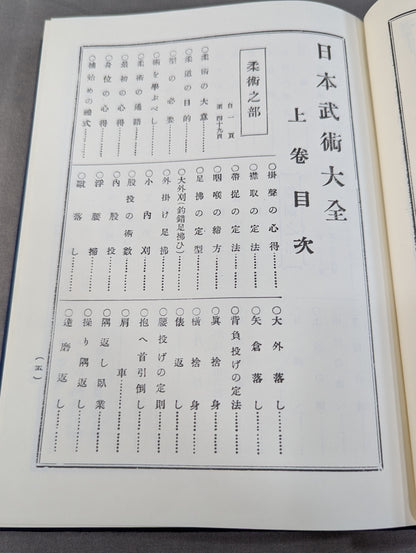 日本武術大全
上巻目次
柔術之部
自一頁
至四十九頁
○柔術の大意
○柔道の目的
○型の必要
○術を學ぶべし
○柔術の通語
○最初の心得
○身位の心得
○掛聲の心得
○襟取の定法
○帶捉の定法
○咽喉の絡方
○足拂の定型
○大外刈(釣錯足拂ひ)
○外掛け足拂
○小内刈
○股投の術數
○内股投
○浮腰
○蹴落し
○大外落し
○矢倉落し
○背負投げの定法
○眞捨身
○橫捨身
○俵返し
○腰投げの定則
○抱へ首引倒し
○肩車
○隅返し臥業
○操り隅返し
○達磨返し
(五)